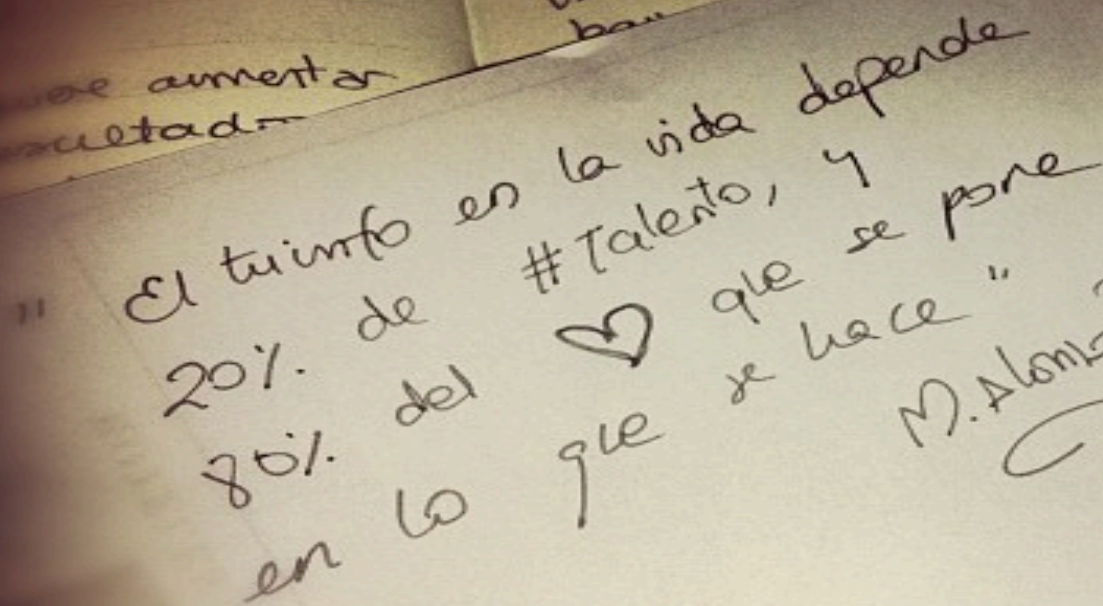 aumentar
" El triunfo en la vida depende
20% de #Talento, y
80% del ♡ que se pone
en lo que se hace "
M. Alonso